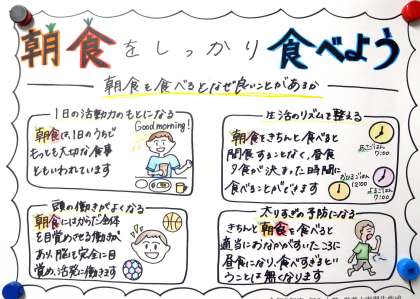 朝食をしっかり食べよう
朝食を食べるとなぜ良いことがあるか
1日の活動力のもとになる
朝食は、1日のうちで
もっとも大切な食事
ともいわれています
Good morning!
生活のリズムを整える
朝食をきちんと食べると
間食することなく、昼食
夕食が決まった時間に
食べることができます
あさごはん
7:00
おひるごはん
12:00
よるごはん
7:00
頭の働きがよくなる
朝食にはからだ全体
を目覚めさせる働きが
あり、脳も完全に目
覚め、活発に働きます
太りすぎの予防になる
きちんと朝食を食べると
適当におなかがすいたころに
昼食になり、食べすぎるとい
うことは無くなります